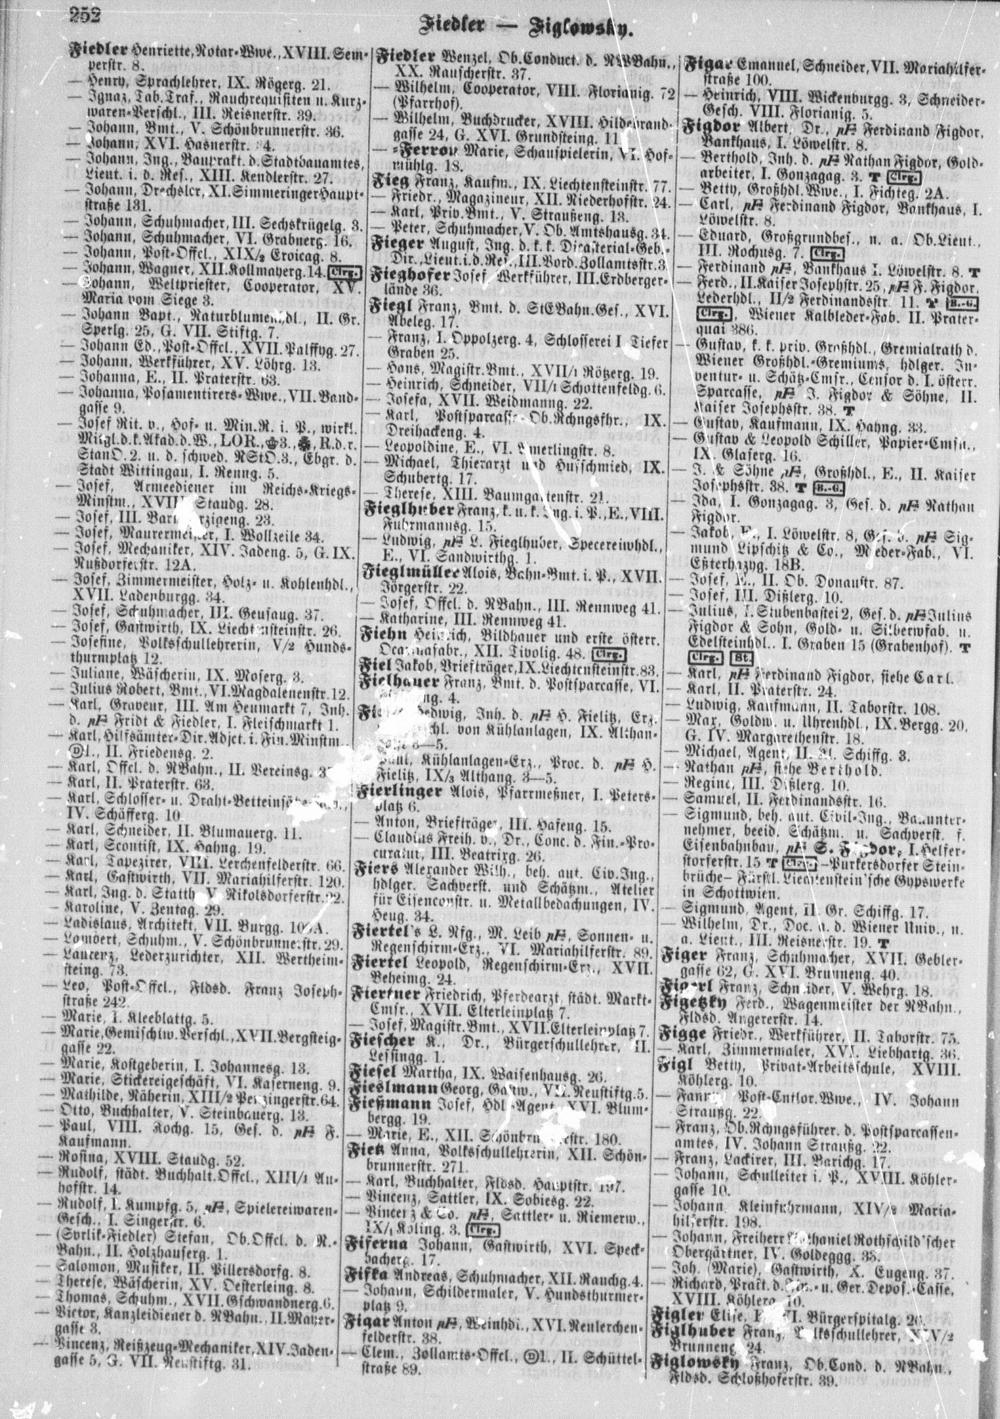 252
Fiedler — Figlowsky.
Fiedler Henriette, Notar-Wwe., XVIII. Sem-
perstr. 8.
— Henry, Sprachlehrer, IX. Rögerg. 21.
— Ignaz, Tab. Traf., Rauchrequisiten u. Kurz-
waren-Verschl., III. Reisnerstr. 39.
— Johann, Bmt., V. Schönbrunnerstr. 36.
— Johann, XVI. Hasnerstr.
— Johann, Ing., Bauprakt. d. Stadtbauamtes,
Lieut. i. d. Res., XIII. Kendlerstr. 27.
— Johann, Drechsler, XI. Simmeringer Haupt-
straße 131.
— Johann, Schuhmacher, III. Sechskrügelg. 3.
— Johann, Schuhmacher, VI. Grabnerg. 16.
— Johann, Post-Offcl., XIX/2 Eroicag. 8.
— Johann, Wagner, XII. Kollmayerg. 14. Clrg.
— Johann, Weltpriester, Cooperator, XV.
Maria vom Siege 3.
— Johann Bapt., Naturblumenhdl., II. Gr.
Sperlg. 25, G. VII. Stiftg. 7.
— Johann Ed., Post-Offcl., XVII. Palffyg. 27.
— Johann, Werkführer, XV. Löhrg. 13.
— Johanna, E., II. Praterstr. 63.
— Johanna, Posamentirers-Wwe., VII. Band-
gasse 9.
— Josef Rit. v., Hof- u. Min. R. i. P., wirkl.
Mitgl. d. k. Akad. d. W., LOR., 3. R. d. r.
StanO. 2. u. d. schwed. NStO. 3., Ehgr. d.
Stadt Wittingau, I. Renng. 5.
— Josef, Armeediener im Reichs-Kriegs-
Minstm., XVIII. Staudg. 28.
— Josef, III. 23.
— Josef, Maurermeister, I. Wollzeile 34.
— Josef, Mechaniker, XIV. Jadeng. 5, G. IX.
Nußdorferstr. 12A.
— Josef, Zimmermeister, Holz- u. Kohlenhdl.,
XVII. Ladenburgg. 34.
— Josef, Schuhmacher, III. Geusaug. 37.
— Josef, Gastwirth, IX. Liechtensteinstr. 26.
— Josefine, Volksschullehrerin, V/2 Hunds-
thurmplatz 12.
— Juliane, Wäscherin, IX. Moserg. 3.
— Julius Robert, Bmt., VI. Magdalenenstr. 12.
— Karl, Graveur, III. Am Heumarkt 7, Inh.
d. Fridt & Fiedler, I. Fleischmarkt 1.
— Karl, Hilfsämter-Dir. Adjct. i. Fin. Minstm.,
II. Friedensg. 2.
— Karl, Offcl. d. NBahn., II. Vereinsg.
— Karl, II. Praterstr. 63.
— Karl, Schlosser- u. Draht-Betteinsätze
IV. Schäfferg. 10
— Karl, Schneider, II. Blumauerg. 11.
— Karl, Scontist, IX. Hahng. 19.
— Karl, Tapezirer, VIII. Lerchenfelderstr. 66.
— Karl, Gastwirth, VII. Mariahilferstr. 120.
— Karl, Ing. d. Statth. V. Nikolsdorferstr.
— Karoline, V. Zentag. 29.
— Ladislaus, Architekt, VII. Burgg.
— Lambert, Schuhm., V. Schönbrunnerstr. 29.
— Laurenz, Lederzurichter, XII. Wertheim-
steing. 73.
— Leo, Post-Offcl., Fldsd. Franz Joseph-
straße 242.
— Marie, I. Kleeblattg. 5.
— Marie, Gemischtw. Verschl., XVII. Bergsteig-
gasse 22.
— Marie, Kostgeberin, I. Johannesg. 13.
— Marie, Stickereigeschäft, VI. Kaserneng. 9.
— Mathilde, Näherin, XIII/2 Penzingerstr. 64.
— Otto, Buchhalter, V. Steinbauerg. 13.
— Paul, VIII. Kochg. 15, Ges. d. F.
Kaufmann.
— Rosina, XVIII. Staudg. 52.
— Rudolf, städt. Buchhalt. Offcl., XIII/1 Au-
hofstr. 14.
— Rudolf, I. Kumpfg. 5, Spielereiwaren-
Gesch., I. Singerstr. 6.
— (Svrlik-Fiedler) Stefan, Ob. Offcl. d. N.-
Bahn., II. Holzhauserg. 1.
— Salomon, Musiker, II. Pillersdorfg. 8.
— Therese, Wäscherin, XV. Oesterleing. 8.
— Thomas, Schuhm., XVII. Gschwandnerg. 6.
— Victor, Kanzleidiener d. NBahn., II. Mayer-
gasse 3.
— Vincenz, Reißzeug-Mechaniker, XIV. Jaden-
gasse 5, G. VII. Neustiftg. 31.
Fiedler Wenzel, Ob. Conduct. d. NWBahn.,
XX. Rauscherstr. 37.
— Wilhelm, Cooperator, VIII. Florianig. 72
(Pfarrhof).
— Wilhelm, Buchdrucker, XVIII. Hildebrand-
gasse 24, G. XVI. Grundsteing. 11.
— =Ferron Marie, Schauspielerin, VI. Hof-
mühlg. 18.
Fieg Franz, Kaufm., IX. Liechtensteinstr. 77.
— Friedr., Magazineur, XII. Niederhofstr. 24.
— Karl, Priv. Bmt., V. Straußeng. 13.
— Peter, Schuhmacher, V. Ob. Amtshausg. 34.
Fieger August, Ing. d. k. k. Dicasterial-Geb.-
Dir., Lieut. i. d. Res., III. Vord. Zollamtsstr. 3.
Fieghofer Josef Werkführer, III. Erdberger-
lände 36.
Fiegl Franz, Bmt. d. StEBahn. Ges., XVI.
Abeleg. 17.
— Franz, I. Oppolzerg. 4, Schlosserei I. Tiefer
Graben 25.
— Hans, Magistr. Bmt., XVII/1 Rötzerg. 19.
— Heinrich, Schneider, VII/1 Schottenfeldg. 6.
— Josefa, XVII. Weidmanng. 22.
— Karl, Postsparcasse-Ob. Rchngsfhr., IX.
Dreihackeng. 4.
— Leopoldine, E., VI. Esterlingstr. 8.
— Michael, Thierarzt und Hufschmied, IX.
Schubertg. 17.
— Therese, XIII. Baumgartenstr. 21.
Fieglhuber Franz, k. u. k. Ing. i. P., E., VIII.
Fuhrmannsg. 15.
— Ludwig, L. Fieglhuber, Specereiwhdl.,
E., VI. Sandwirthg. 1.
Fieglmüller Alois, Bahn-Bmt. i. P., XVII.
Jörgerstr. 22.
— Josef, Offcl. d. NBahn., III. Rennweg 41.
— Katharine, III. Rennweg 41.
Fiehn Heinrich, Bildhauer und erste österr.
Ocarinafabr., XII. Tivolig. 48. Clrg.
Fiel Jakob, Briefträger, IX. Liechtensteinstr. 83.
Fielhauer Franz, Bmt. d. Postsparcasse, VI.
ng. 4.
Hedwig, Inh. d. H. Fielitz, Erz.
von Kühlanlagen, IX. Althan-
3—5.
— Paul, Kühlanlagen-Erz., Proc. d. H.
Fielitz, IX/3 Althang. 3—5.
Fierlinger Alois, Pfarrmeßner, I. Peters-
platz 6.
— Anton, Briefträger, III. Hafeng. 15.
— Claudius Freih. v., Dr., Conc. d. Fin.-Pro-
curatur, III. Beatrixg. 26.
Fiers Alexander Wilh., beh. aut. Civ. Ing.,
hdlger. Sachverst. und Schätzm., Atelier
für Eisenconstr. u. Metallbedachungen, IV.
Heug. 34.
Fiertel's L. Nfg., M. Leib, Sonnen- u.
Regenschirm-Erz., VI. Mariahilferstr. 89.
Fiertel Leopold, Regenschirm-Erz., XVII.
Beheimg. 24.
Fiertner Friedrich, Pferdearzt, städt. Markt-
Cmsr., XVII. Elterleinplatz 7.
— Josef, Magistr. Bmt., XVII. Elterleinplatz 7.
Fiescher K., Dr., Bürgerschullehrer, II.
Lessingg. 1.
Fiesel Martha, IX. Waisenhausg. 26.
Fieslmann Georg, Gastw., VII. Neustiftg. 5.
Fießmann Josef, Hdl. Agent, XVI. Blum-
bergg. 19.
— Marie, E., XII. Schönbrunnerstr. 180.
Fietz Anna, Volksschullehrerin, XII. Schön-
brunnerstr. 271.
— Karl, Buchhalter, Fldsd. Hauptstr.
— Vincenz, Sattler, IX. Sobiesg. 22.
— Vincenz & Co., Sattler- u. Riemerw.,
IX/1 Koling. 3. Clrg.
Fiferna Johann, Gastwirth, XVI. Speck-
bacherg. 17.
Fifka Andreas, Schuhmacher, XII. Rauchg. 4.
— Johann, Schildermaler, V. Hundsthurmer-
platz 9.
Figar Anton, Weinhdl., XVI. Neulerchen-
felderstr. 38.
— Clem., Zollamts-Offcl., II. Schüttel-
straße 89.
Figar Emanuel, Schneider, VII. Mariahilfer-
straße 100.
— Heinrich, VIII. Wickenburgg. 3, Schneider-
Gesch. VIII. Florianig. 5.
Figdor Albert, Dr., Ferdinand Figdor,
Bankhaus, I. Löwelstr. 8.
— Berthold, Inh. d. Nathan Figdor, Gold-
arbeiter, I. Gonzagag. 3. T Clrg.
— Betty, Großhdl. Wwe., I. Fichteg. 2A.
— Carl, Ferdinand Figdor, Bankhaus, I.
Löwelstr. 8.
— Eduard, Großgrundbes., n. a. Ob. Lieut.,
III. Rochusg. 7. Clrg.
— Ferdinand, Bankhaus I. Löwelstr. 8. T
— Ferd., II. Kaiser Josephstr. 25, F. Figdor,
Lederhdl., II/2 Ferdinandsstr. 11. T B.-G.
Clrg., Wiener Kalbleder-Fab. II. Prater-
quai 386.
— Gustav, k. k. priv. Großhdl., Gremialrath d.
Wiener Großhdl.-Gremiums, hdlger. In-
ventur- u. Schätz-Cmsr., Censor d. I. österr.
Sparcasse, J. Figdor & Söhne, II.
Kaiser Josephsstr. 38. T
— Gustav, Kaufmann, IX. Hahng. 33.
— Gustav & Leopold Schiller, Papier-Cmsn.,
IX. Glaserg. 16.
— J. & Söhne, Großhdl., E., II. Kaiser
Josephsstr. 38. T B.-G.
— Ida, I. Gonzagag. 3, Ges. d. Nathan
Figdor.
— Jakob, I. Löwelstr. 8, Ges. d. Sig-
mund Lipschitz & Co., Mieder-Fab., VI.
Eßterházyg. 18B.
— Josef, II. Ob. Donaustr. 87.
— Josef, III. Dißlerg. 10.
— Julius, I. Stubenbastei 2, Ges. d. Julius
Figdor & Sohn, Gold- u. Silberwfab. u.
Edelsteinhdl., I. Graben 15 (Grabenhof). T
Clrg. St.
— Karl, Ferdinand Figdor, siehe Carl.
— Karl, II. Praterstr. 24.
— Ludwig, Kaufmann, II. Taborstr. 108.
— Max, Goldw. u. Uhrenhdl., IX. Bergg. 20,
G. IV. Margarethenstr. 18.
— Michael, Agent, II. Kl. Schiffg. 3.
— Nathan, siehe Berthold.
— Regine, III. Dißlerg. 10.
— Samuel, II. Ferdinandsstr. 16.
— Sigmund, beh. aut. Civil-Ing., Bauunter-
nehmer, beeid. Schätzm. u. Sachverst. f.
Eisenbahnbau, S. Figdor, I. Helfer-
storferstr. 15 T Clrg.-Purkersdorfer Stein-
brüche- Fürstl. Liechtenstein'sche Gypswerke
in Schottwien.
— Sigmund, Agent, II. Gr. Schiffg. 17.
— Wilhelm, Dr., Doc. a. d. Wiener Univ., n.
a. Lieut., III. Reisnerstr. 19. T
Figer Franz, Schuhmacher, XVII. Gebler-
gasse 62, G. XVI. Brunneng. 40.
Figerl Franz, Schneider, V. Wehrg. 18.
Figetzky Ferd., Wagenmeister der NBahn.,
Fldsd. Angererstr. 14.
Figge Friedr., Werkführer, II. Taborstr. 75.
— Karl, Zimmermaler, XVI. Liebhartg. 36.
Figl Betty, Privat-Arbeitsschule, XVIII.
Köhlerg. 10.
— Fanny Post-Cntlor. Wwe., IV. Johann
Straußg. 22.
— Franz, Ob. Rchngsführer. d. Postsparcassen-
amtes, IV. Johann Straußg. 22.
— Franz, Lackirer, III. Barichg. 17.
— Johann, Schulleiter i. P., XVIII. Köhler-
gasse 10.
— Johann, Kleinfuhrmann, XIV/2 Maria-
hilferstr. 198.
— Johann, Freiherr Nathaniel Rothschild'scher
Obergärtner, IV. Goldeggg. 38.
— Joh. (Marie), Gastwirth, X. Eugeng. 37.
— Richard, Pract. d. Civ.- u. Ger. Depos.-Casse,
XVIII. Köhlerg. 10.
Figler Elise, VI. Bürgerspitalg.
Figlhuber Franz, Volksschullehrer, XIV/2
Brunneng. 24.
Figlowsky Franz, Ob. Cond. d. NBahn.,
Fldsd. Schloßhoferstr. 39.